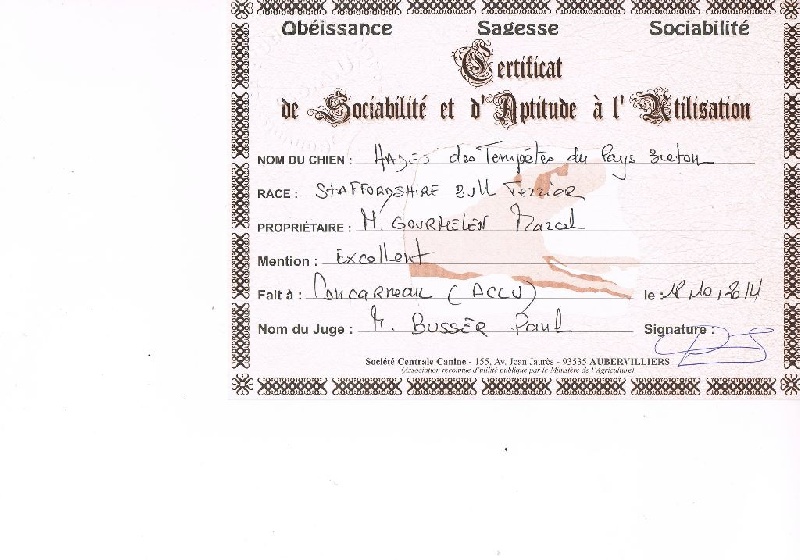 Obéissance Sagesse Sociabilité
Certificat
de Sociabilité et d'Aptitude à l'Utilisation
NOM DU CHIEN : HADES des Tempêtes du Pays Breton
RACE : STAFFORDSHIRE BULL Terrier
PROPRIÉTAIRE : M. GOURMELEN Marcel
Mention : Excellent
Fait à : Concarneau (ACCU) le : 18.10.2014
Nom du Juge : M. BUSSER Paul Signature :
Société Centrale Canine - 155, Av. Jean Jaurès - 93535 AUBERVILLIERS
(Association reconnue d'utilité publique par le Ministère de l'Agriculture)